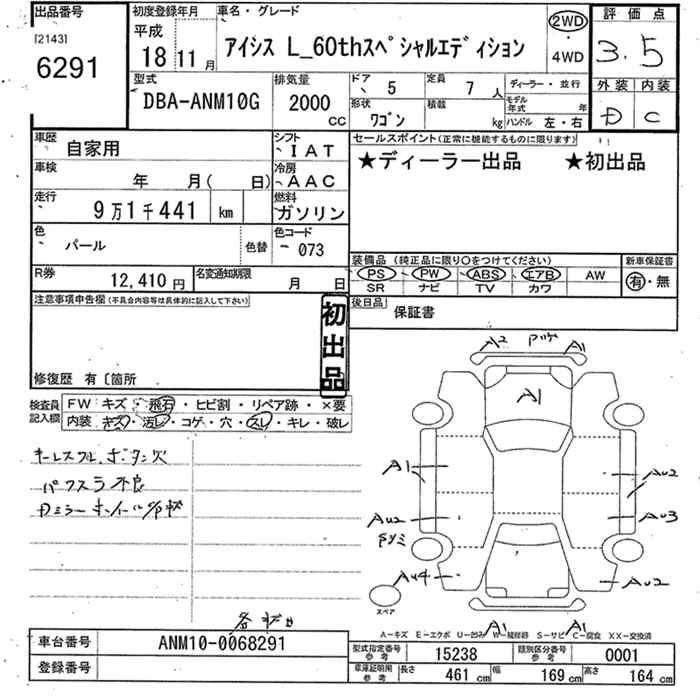 出品番号
[2143]
6291
初度登録年月
平成
18 11 月
車名・グレード
アイシス L_60thスペシャルエディション
2WD
・
4WD
評価点
3.5
外装 内装
D C
型式
DBA-ANM10G
排気量
2000
CC
ドア 5
定員 7 人
ディーラー・並行
形状 ワゴン
積載 kg
モデル年式 年
ハンドル 左・右
車歴 自家用
シフト IAT
車検 年 月( 日)
冷房 AAC
走行 9万1千441 km
燃料 ガソリン
色 パール 色替
色コード 073
R券 12,410 円
名変通知期限 月 日
セールスポイント(正常に機能するものに限ります)
★ディーラー出品 ★初出品
装備品 (純正品に限り○をつけてください)
新車保証書
PS PW ABS エアB AW
SR ナビ TV カワ
有・無
後日品 保証書
注意事項申告欄(不具合内容等は具体的に記入して下さい)
初出品
修復歴 有〔箇所
検査員記入欄
FW キズ・飛石・ヒビ割・リペア跡・×要
内装 キズ・汚レ・コゲ・穴・スレ・キレ・破レ
キーレスフル ボタン穴
パワスラ不良
A2 A1
A1
A1
AU2
AU2
AU3
AU4
AU2
スペア
A1 A1
A-キズ E-エクボ U-凹ミ W-補修跡 S-サビ C-腐食 XX-交換済
車台番号 ANM10-0068291
登録番号
型式指定番号 参考 15238
類別区分番号 参考 0001
車庫証明用 参考 長さ 461 cm 幅 169 cm 高さ 164 cm